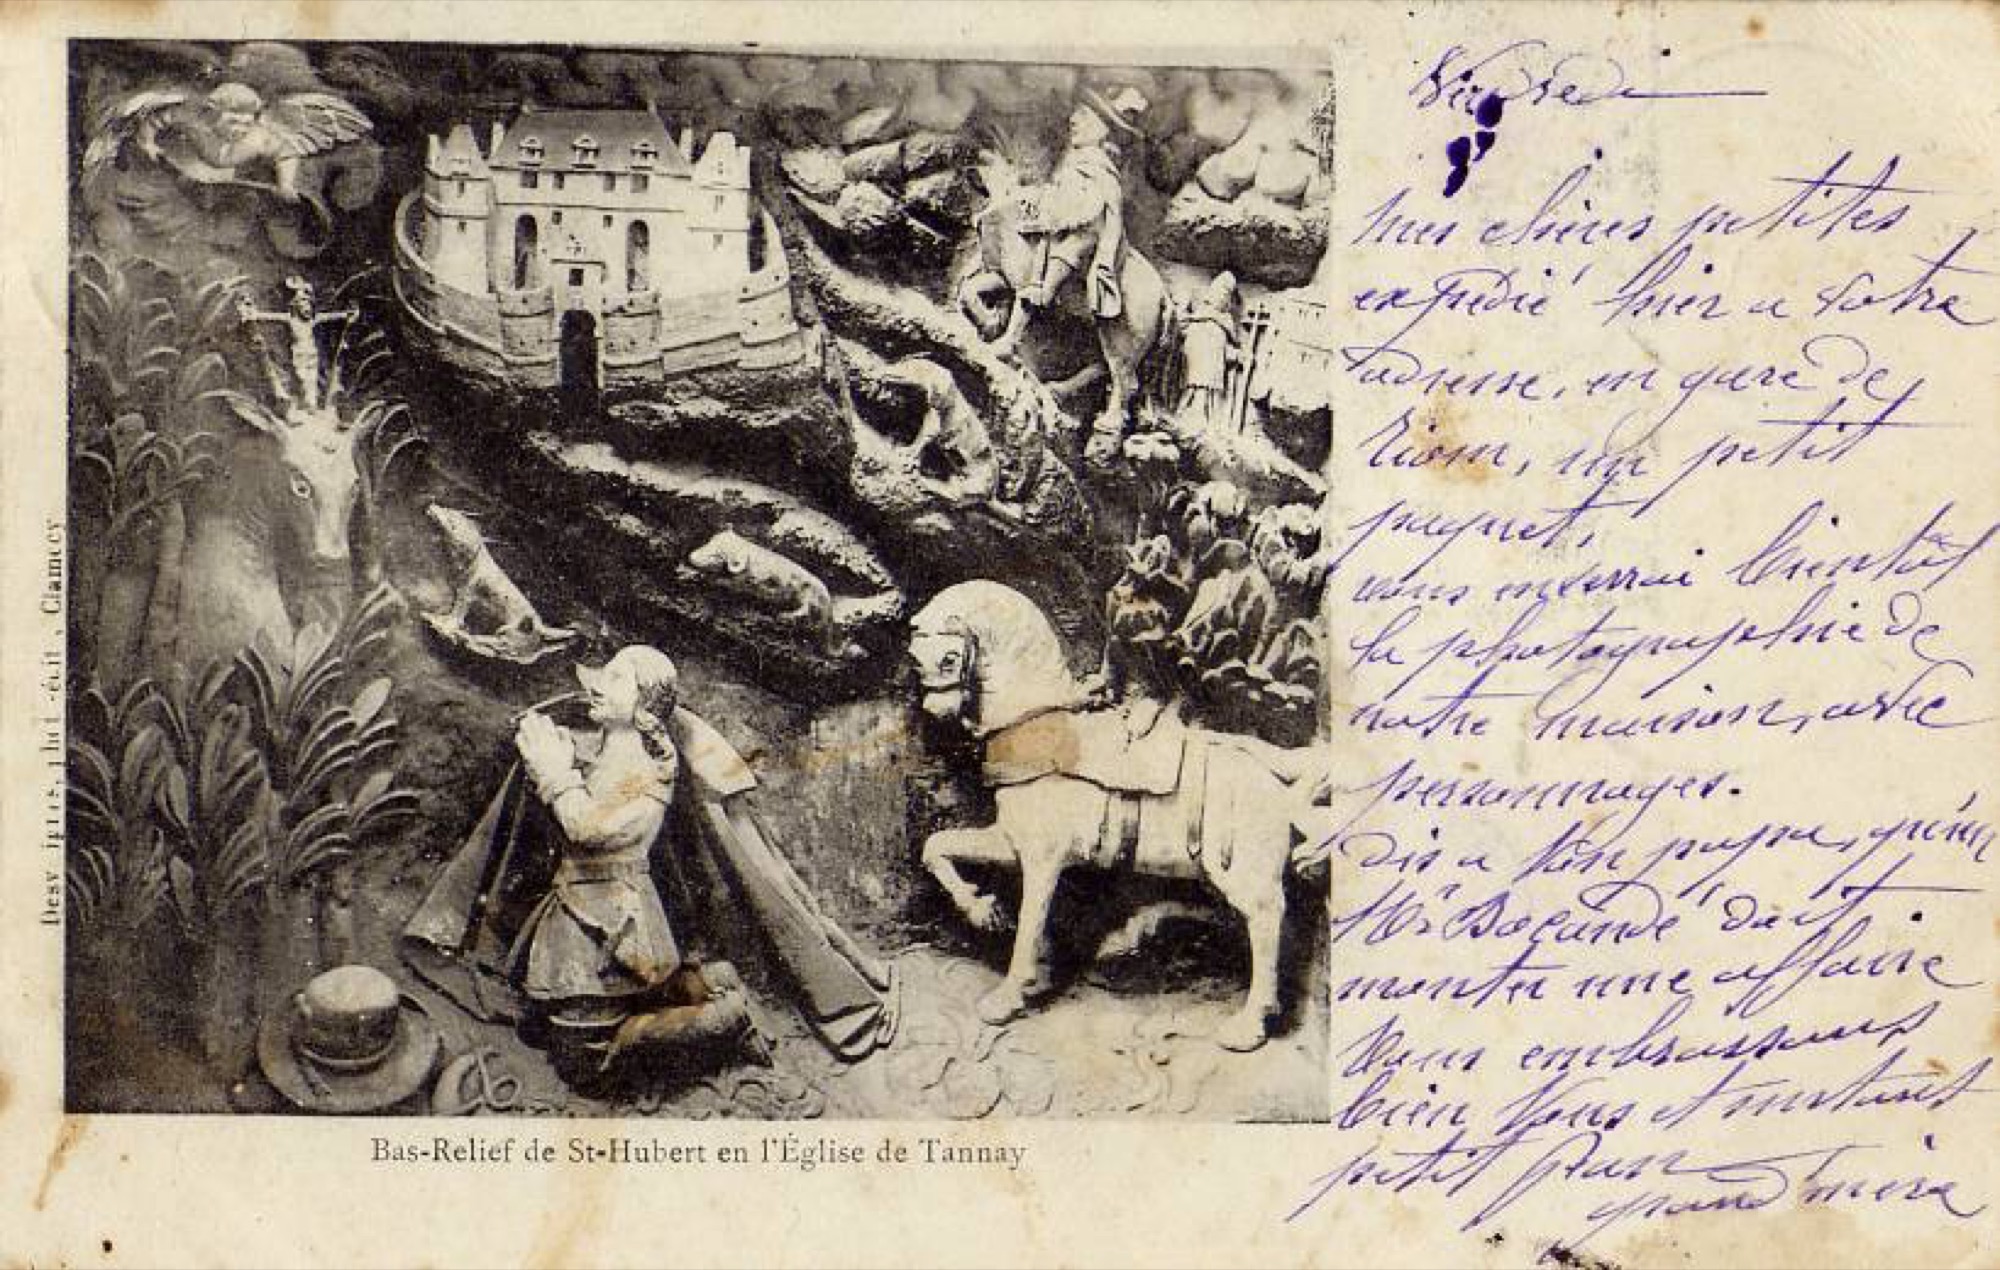 Vendredi
mes chères petites
expédié hier a votre
adresse, en gare de
Riom, un petit
paquet,
vous enverrai bientôt
la photographie de
notre maison, avec
personnages.
dis a ton papa, qu'un
Mr doit
monter une affaire
Vous embrassons
bien Vous et
petit Jean
grand'mère
Bas-Relief de St-Hubert en l'Église de Tannay
phot.-édit., Clamecy